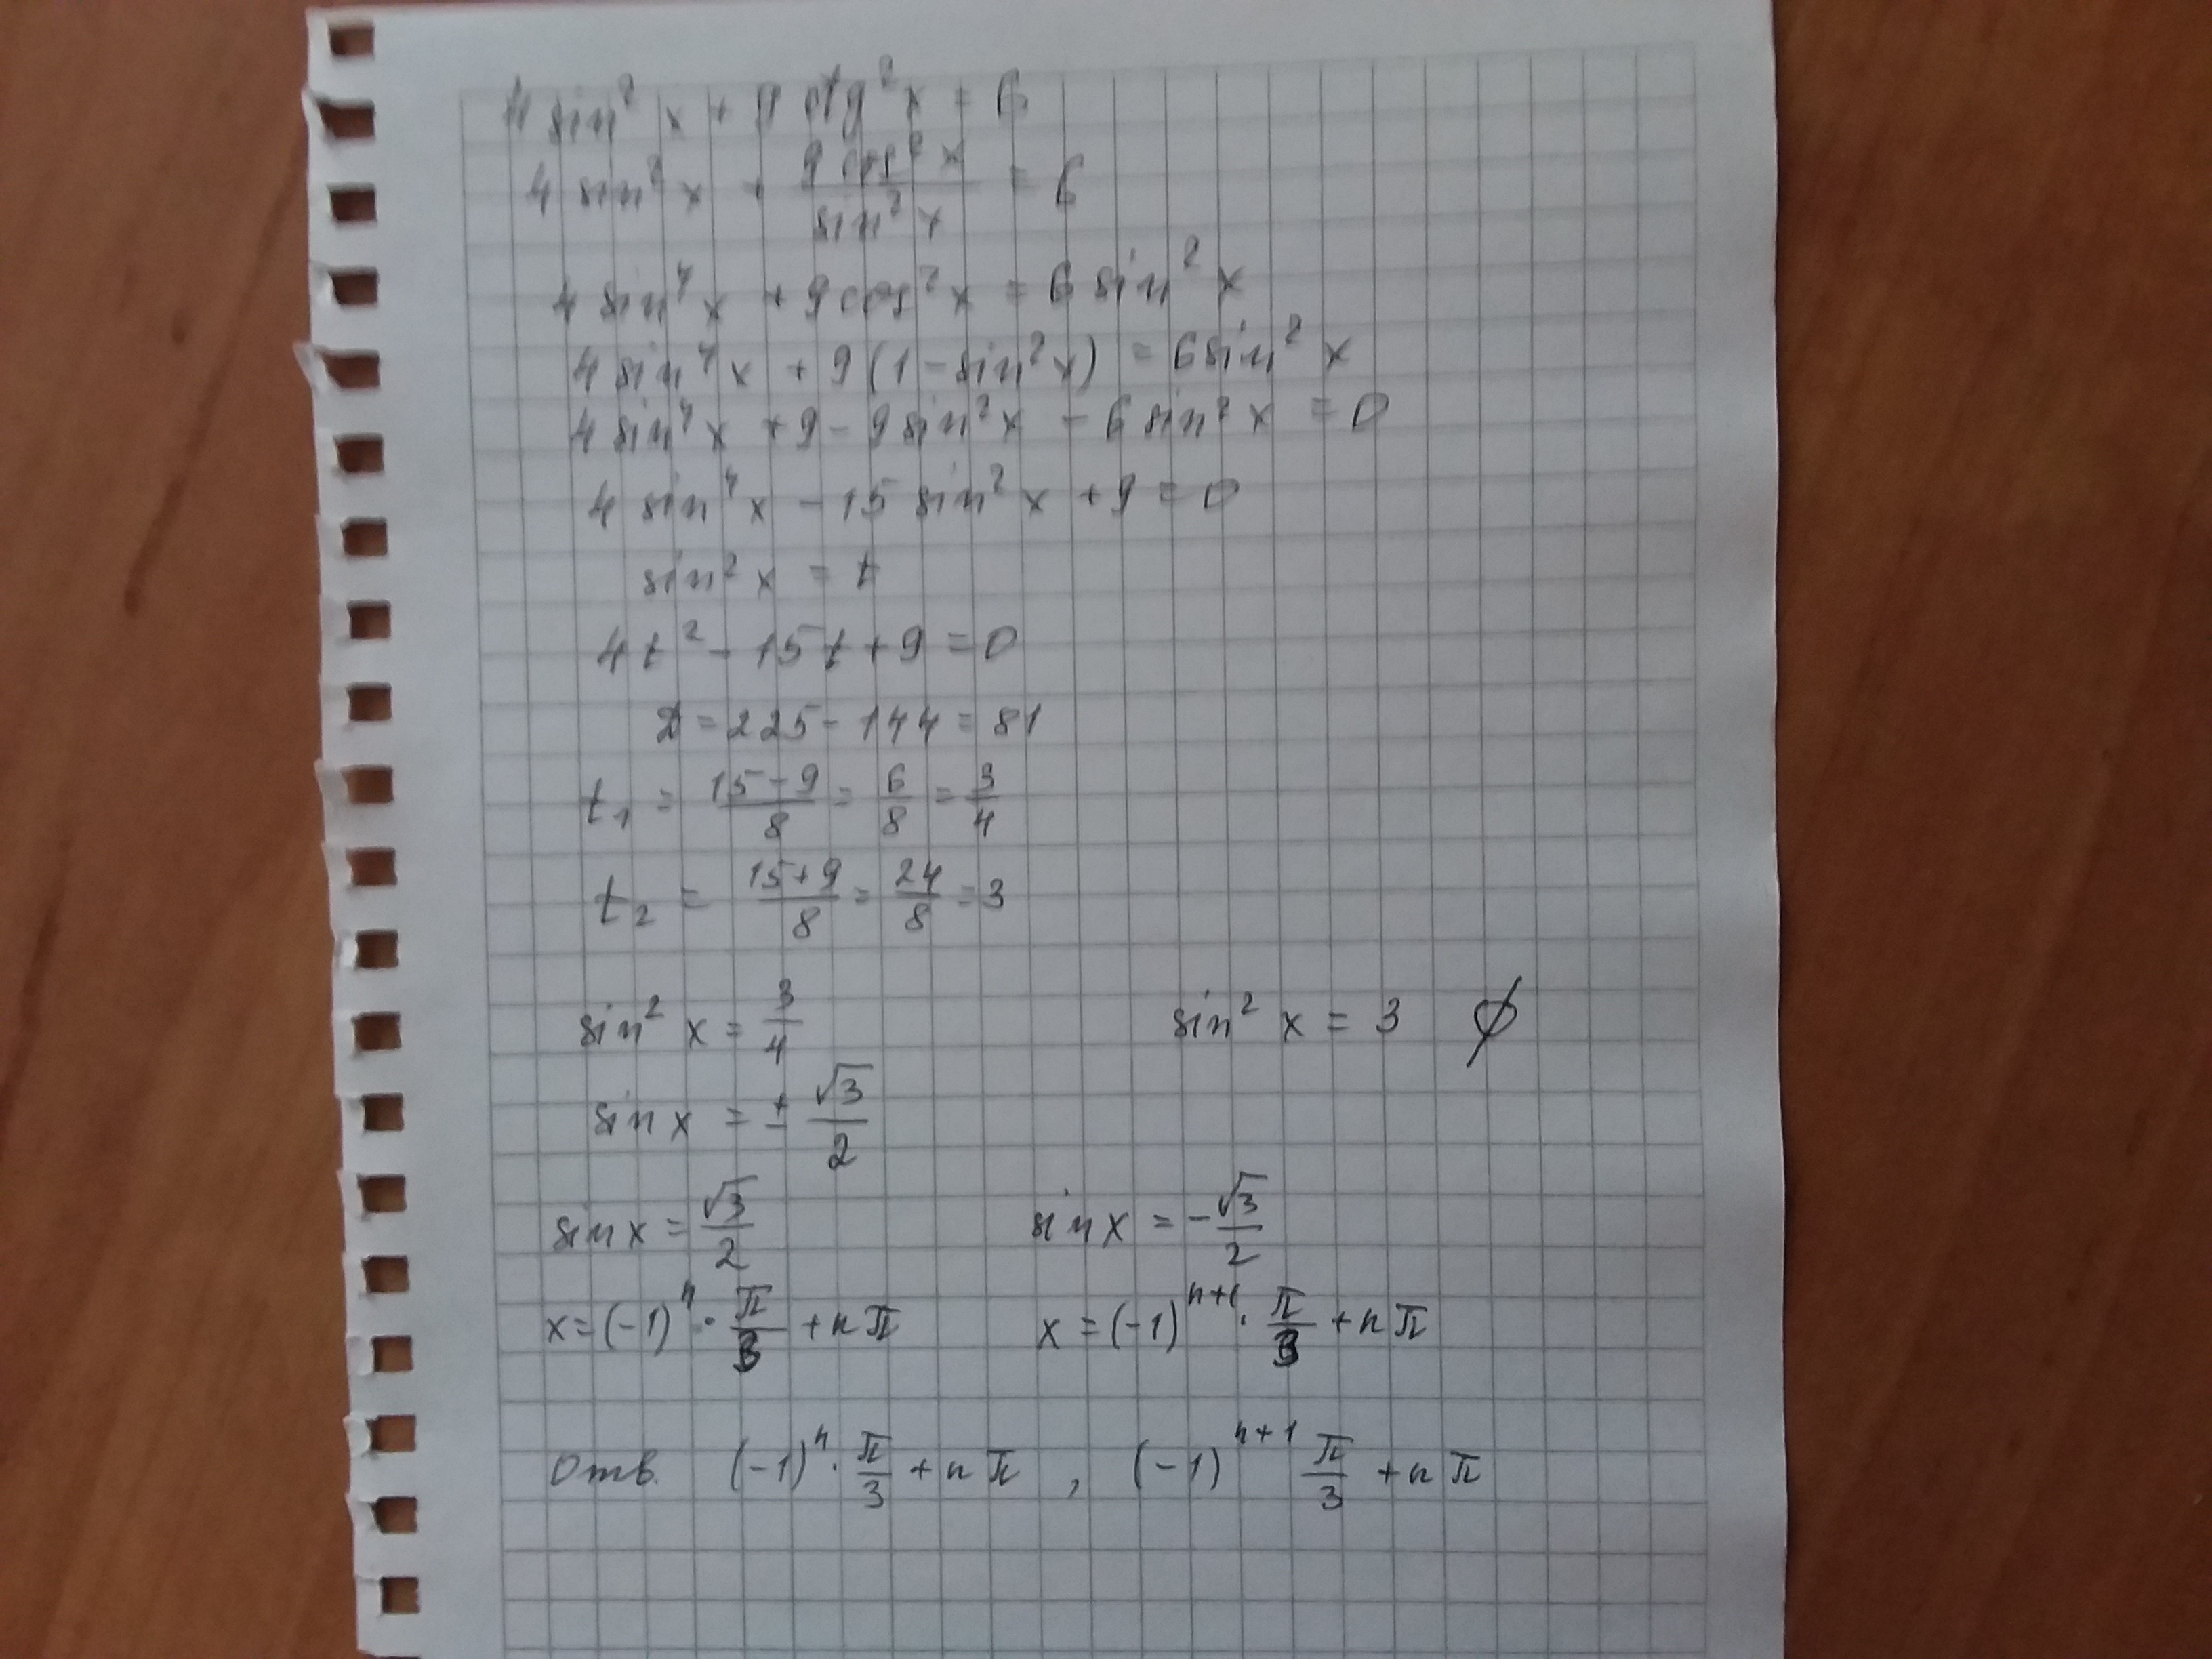 4 sin² x + 9 ctg² x = 6
4 sin² x + 9 cos² x / sin² x = 6
4 sin⁴ x + 9 cos² x = 6 sin² x
4 sin⁴ x + 9 (1 - sin² x) = 6 sin² x
4 sin⁴ x + 9 - 9 sin² x - 6 sin² x = 0
4 sin⁴ x - 15 sin² x + 9 = 0
sin² x = t
4t² - 15t + 9 = 0
D = 225 - 144 = 81
t₁ = (15 - 9)/8 = 6/8 = 3/4
t₂ = (15 + 9)/8 = 24/8 = 3
sin² x = 3/4 sin² x = 3 ∅
sin x = ± √3/2
sin x = √3/2 sin x = - √3/2
x = (-1)ⁿ · π/3 + n π x = (-1)ⁿ⁺¹ · π/3 + n π
Отв. (-1)ⁿ · π/3 + n π , (-1)ⁿ⁺¹ π/3 + n π